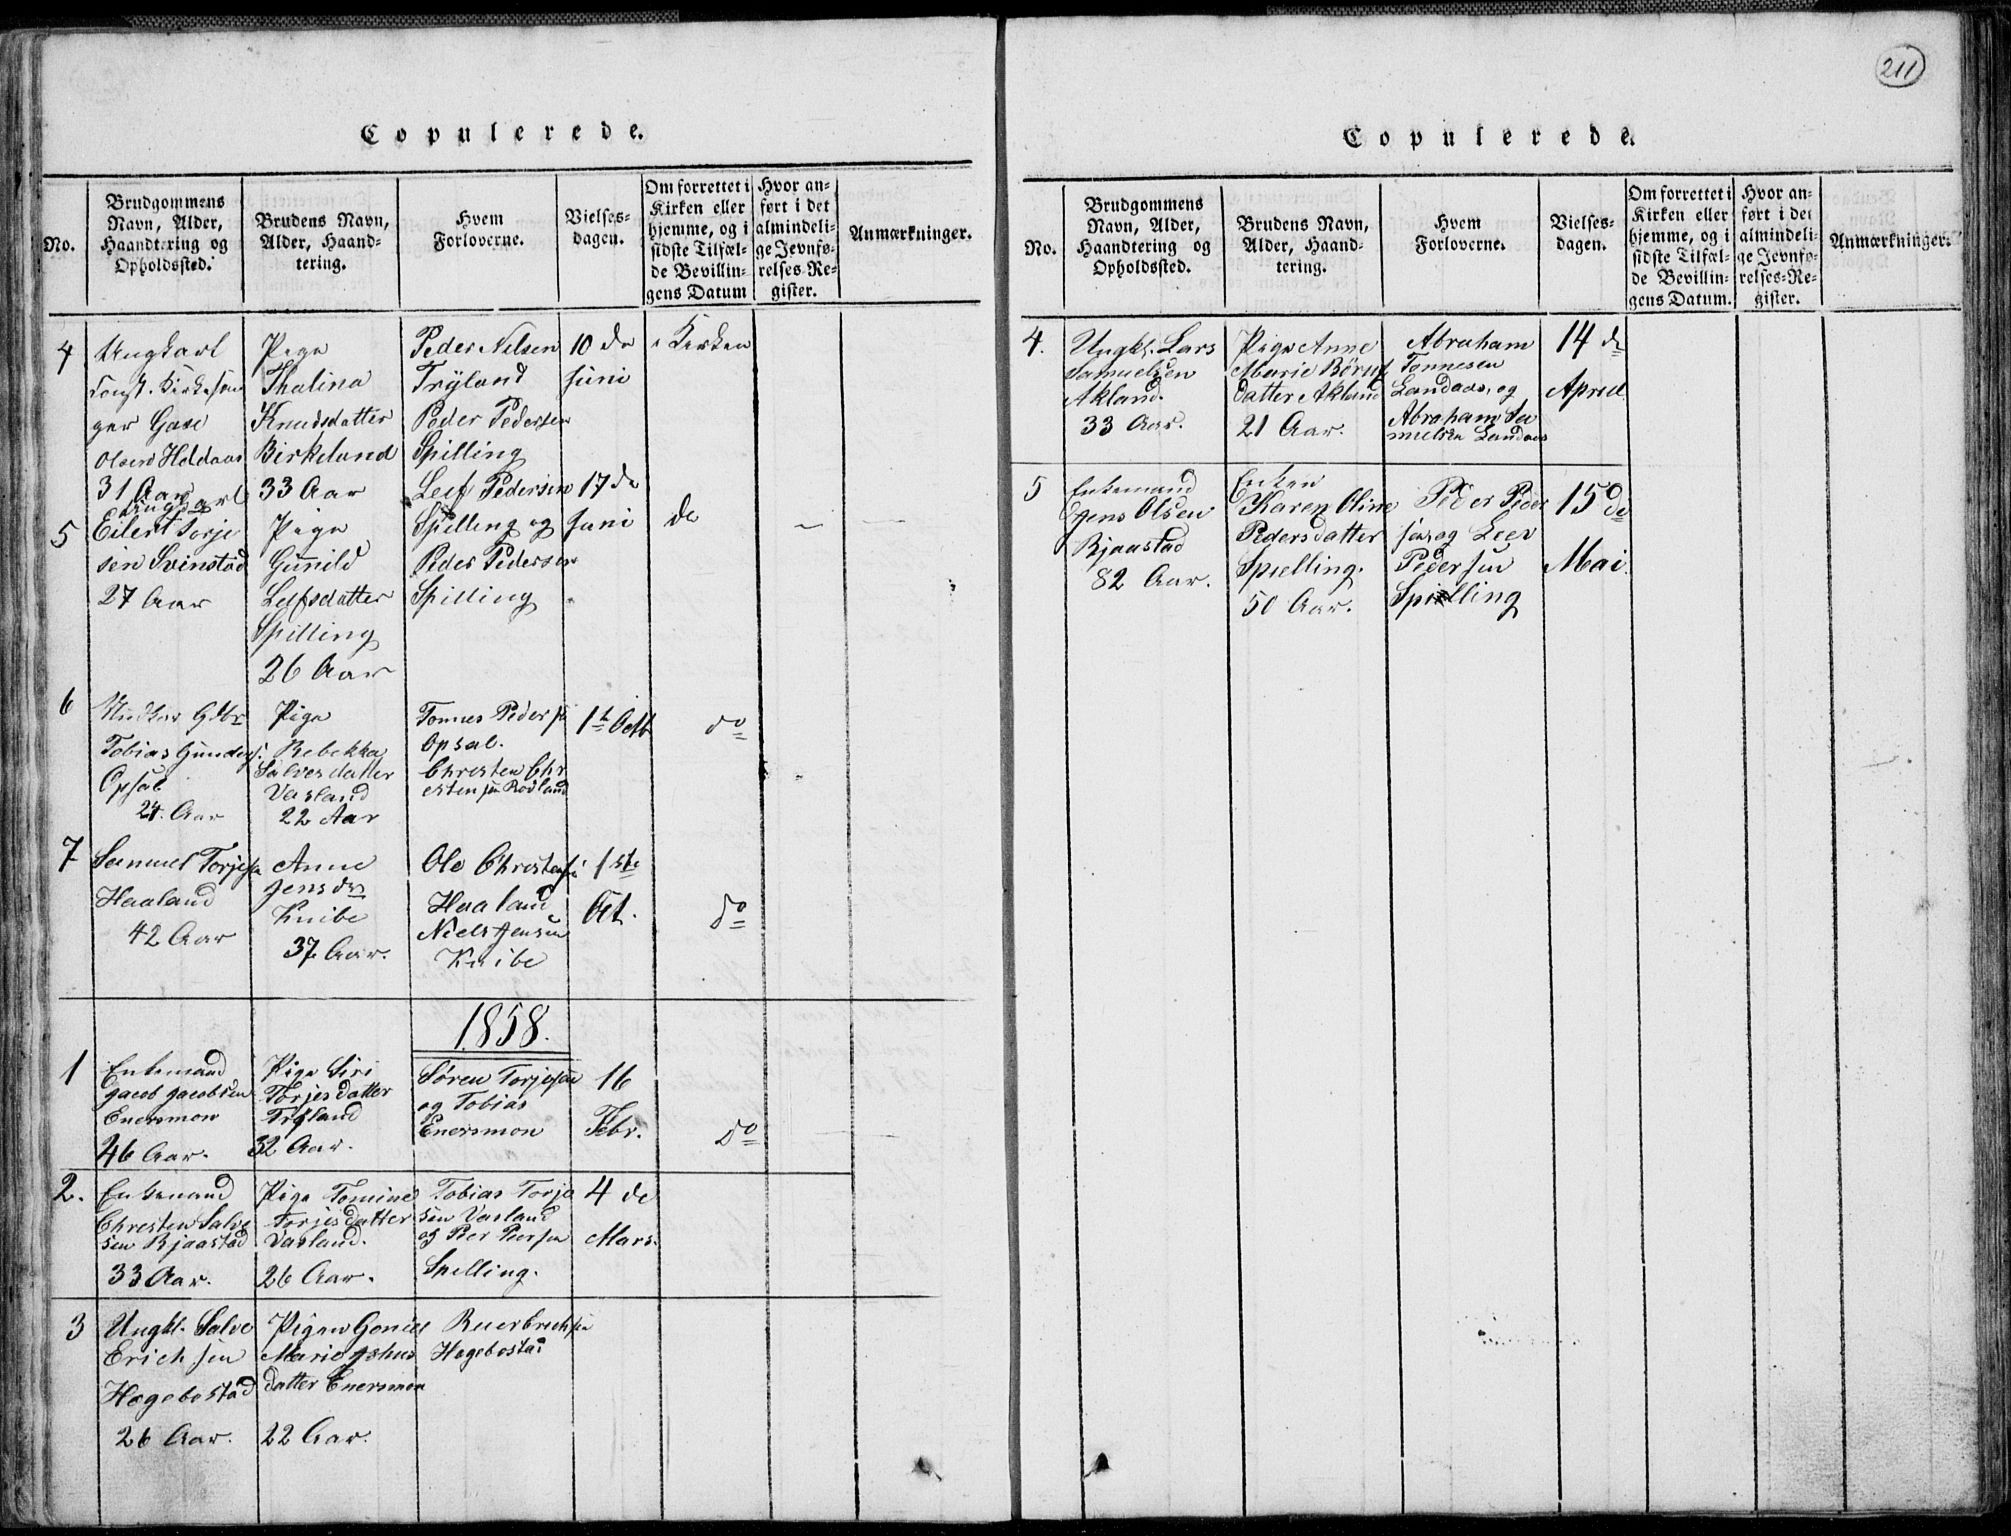 211
Copulerede.
No.
Brudgommens
Navn, Alder,
Haandtering og
Opholdssted.
Brudens Navn,
Alder, Haand-
tering.
Hvem
Forloverne.
Vielses-
dagen.
Om forrettet i
Kirken eller
hjemme, og i
sidste Tilfæl-
de Bevillin-
gens Datum
Hvor an-
ført i det
almindeli-
ge Jevnfø-
relses-Re-
gister.
Anmærkninger.
4
Ungkarl
Const. Kirkesan
ger Gase
Olsen Heldaas
31 Aar
Pige
Thalina
Knudsdatter
Birkeland
33 Aar
Peder Nilsen
Tryland
Peder Pedersen
Spilling
10 de
Juni
i Kirken
5
Ungkarl
Eilert Torje
sen Svinstød
27 Aar
Pige
Gunild
Leifsdatter
Spilling
26 Aar
Leif Pedersen
Spilling og
Peder Pedersen
Spilling
17 de
Juni
do
6
Tobias Gunders.
Opsal
24. Aar
Pige
Rebekka
Salvesdatter
Vasland
22 Aar
Tønnes Peders
Opsal.
Christen Chr
istensen Rødland
1ste Octb
do
7
Samuel Torjesen
Haaland
42 Aar
Anne
Jensdtr
Knibe
37 Aar.
Ole Christensen
Haaland
Niels Jensen
Knibe
1ste
Oct.
do
1858.
1
Enkemand
Jacob Jacobsen
Enersmon
46 Aar.
Pige Siri
Torjesdatter
Tryland
32 Aar.
Søren Torjesen
og Tobias
Enersmon
16
Febr.
do
2.
Enkemand
Christen Salve
sen Bjaastad
33 Aar.
Pige Tomine
Torjesdatter
Vasland.
26 Aar.
Tobias Torje
sen Vasland
og Per Persen
Spelling.
4 de
Mars.
3
Ungkl. Salve
Erichsen
Hagebostad
26 Aar.
Pigen
Marie
datter Enersmon
22 Aar.
Hagebostad
Copulerede.
No.
Brudgommens
Navn, Alder,
Haandtering og
Opholdssted.
Brudens Navn,
Alder, Haand-
tering.
Hvem
Forloverne.
Vielses-
dagen.
Om forrettet i
Kirken eller
hjemme, og i
sidste Tilfæl-
de Bevillin-
gens Datum.
Hvor an-
ført i det
almindeli-
ge Jevnfø-
relses-Re-
gister.
Anmærkninger.
4.
Ungkl. Lars
Samuelsen
Akland.
33 Aar.
Pige Anne
Marie Børufs
datter Akland
21 Aar.
Abraham
Tønnesen
Landaas, og
Abraham Sa
muelsen Landaas
14 de
April
5
Enkemand
Jens Olsen
Bjaastad
82 Aar.
Enken
Karen Oline
Pedersdatter
Spielling.
50 Aar.
Peder Peder
sen, og Leev
Pedersen
Spielling
15 de
Mai.